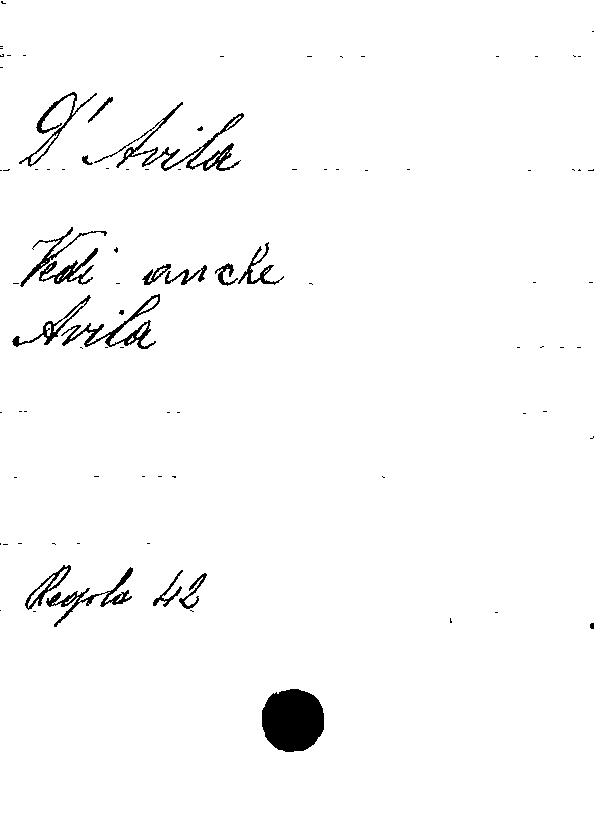 D'Avila
Vedi anche
Avila
Regola 42